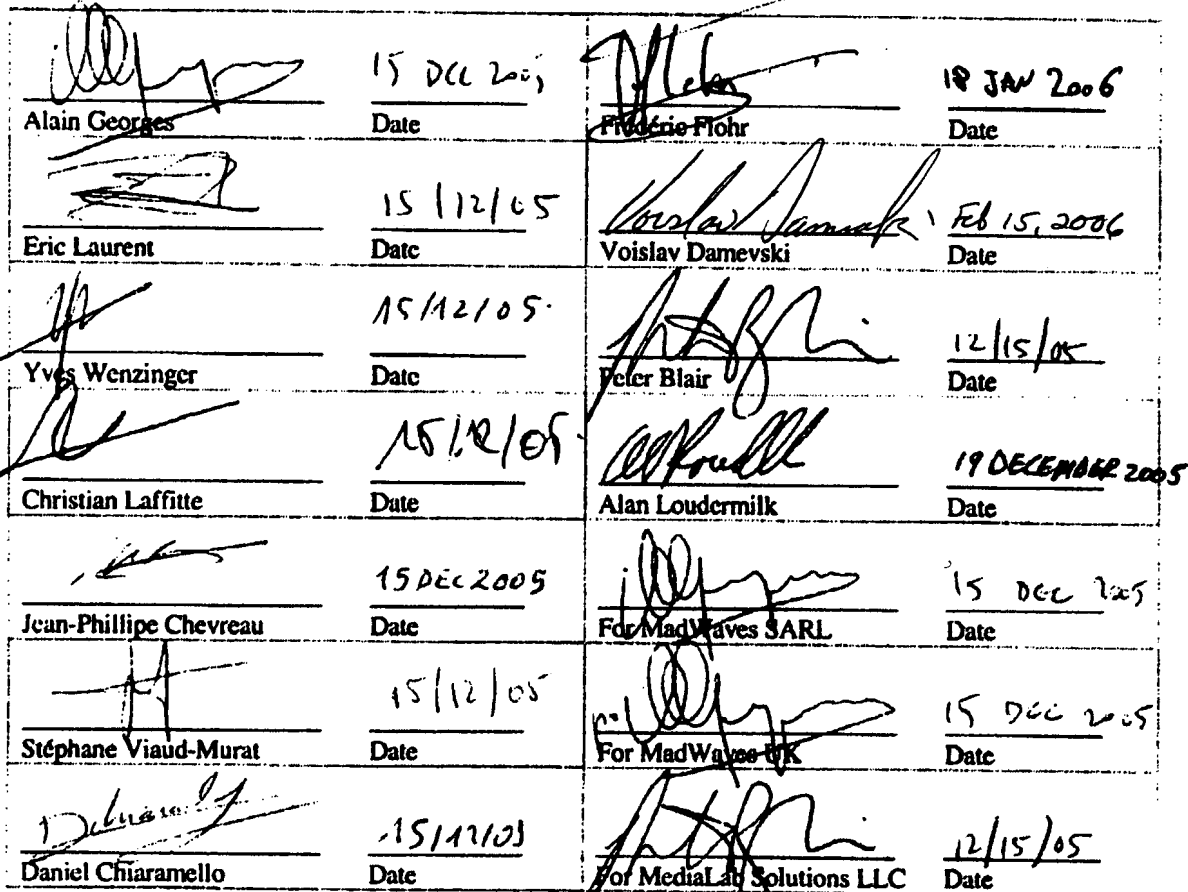 15 DEC 2005 18 JAN 2006
Alain Georges Date Frédéric Flohr Date
15/12/05 Voislav Damevski Feb 15, 2006
Eric Laurent Date Voislav Damevski Date
15/12/05 12/15/05
Yves Wenzinger Date Peter Blair Date
15/12/05 19 DECEMBER 2005
Christian Laffitte Date Alan Loudermilk Date
15 DEC 2005 15 DEC 2005
Jean-Phillipe Chevreau Date For MadWaves SARL Date
15/12/05 15 DEC 2005
Stéphane Viaud-Murat Date For MadWaves UK Date
15/12/05 12/15/05
Daniel Chiaramello Date For MediaLab Solutions LLC Date